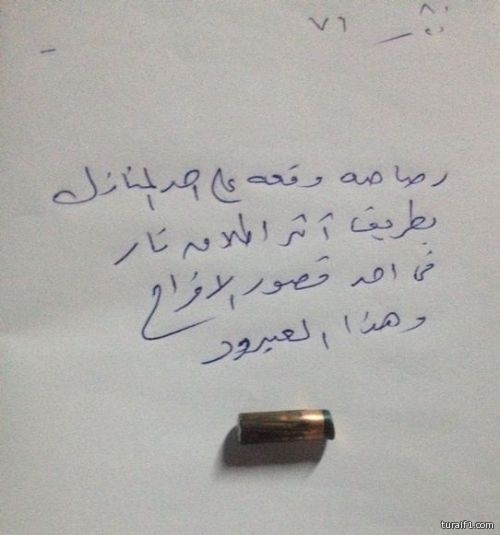 ٧٦
رصاصه وقعه على احد المنازل
بطريف آثر اطلاق نار
في احد قصور الافراح
وهذا العيرود
turaif1.com